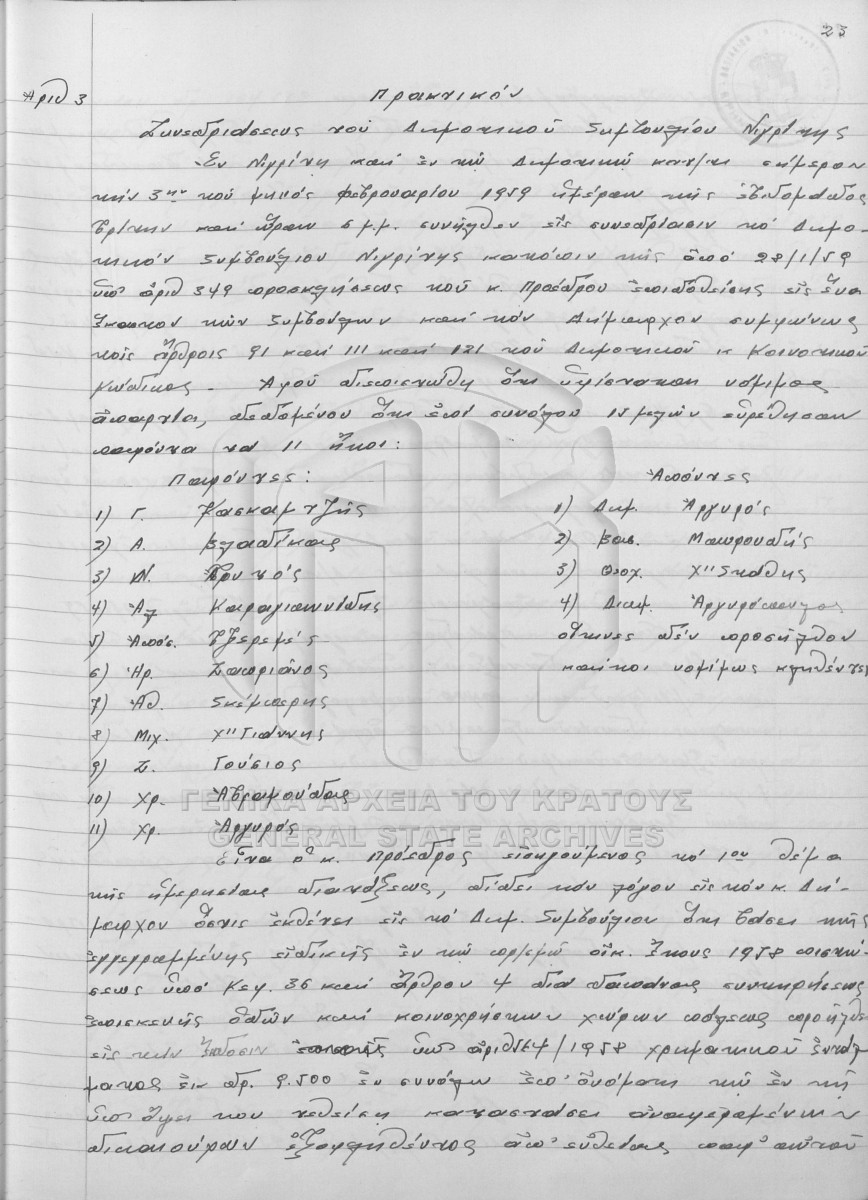 23
Αριθ 3
Πρακτικόν
Συνεδριάσεως τού Δημοτικού Συμβουλίου Νιγρίτης
Εν Νιγρίτη και έν τώ Δημοτικώ κατ/τι σήμερον
τήν 3ην τού μηνός Φεβρουαρίου 1959 ημέραν τής εβδομάδος
Τρίτην και ώραν 5 μ.μ. συνήλθεν είς συνεδρίασιν τό Δημο-
τικόν Συμβούλιον Νιγρίτης κατόπιν τής από 28/1/59
υπ' αριθ 349 προσκλήσεως τού κ. Προέδρου επιδοθείσης είς ένα
έκαστον τών Συμβούλων και τόν Δήμαρχον συμφώνως
τοίς άρθροις 91 και 111 και 121 τού Δημοτικού κ Κοινοτικού
Κώδικος - Αφού διεπιστώθη ότι υφίσταται νόμιμος
απαρτία, δεδομένου ότι επί συνόλου 15 μελών ευρέθησαν
παρόντα τα 11 ήτοι:
Παρόντες:
1) Γ. Κασκαμτζής
2) Α. Βλαδίκας
3) Ν.
4) Αλ Καραγιαννίδης
5) Αποσ. Τζερεμές
6) Ηρ. Σαπριάνος
7) Αθ. Σκέμπερης
8) Μιχ. Χ"Γιάννης
9) Σ. Γούσιος
10) Χρ. Αβραμούδας
11) Χρ. Αργυρός
Απόντες
1) Δημ. Αργυρός
2) Βασ. Μαυρουδής
3) Θεοχ. Χ"Στάθης
4) Διαμ. Αργυρόπουλος
οίτινες δέν προσήλθον
καίτοι νομίμως κληθέντες
ΓΕΝΙΚΑ ΑΡΧΕΙΑ ΤΟΥ ΚΡΑΤΟΥΣ
GENERAL STATE ARCHIVES
Είτα ο κ. Πρόεδρος εισηγούμενος τό 1ον θέμα
τής ημερησίας διατάξεως, δίδει τον λόγον είς τόν κ. Δή-
μαρχον όστις εκθέτει είς τό Δημ. Συμβούλιον ότι βάσει τής
εγγεγραμμένης ειδικής έν τώ πρ/σμώ οικ. έτους 1958 πιστώ-
σεως υπό Κεφ. 36 και άρθρον 4 δια δαπάνας συντηρήσεως
επισκευής οδών και κοινοχρήστων χώρων πόλεως προήλθε
είς τήν έκδοσιν υπ' αριθ 564/1958 χρηματικού εντάλ
ματος έκ δρ. 9.500 έν συνόλω επ' ονόματι τών έν τή
υπ' όψει του τεθείση καταστάσει αναφερομένων
δικαιούχων εξοφληθέντος απ' ευθείας παρ' αυτού